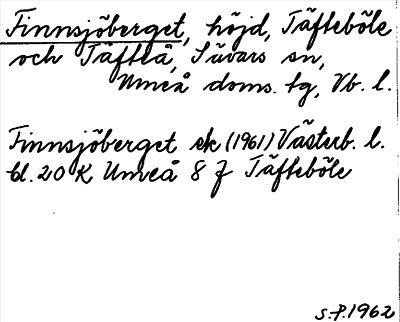 Finnsjöberget, höjd, Täfteböle
och Täfteå, Sävars sn,
Umeå doms. tg, Vb. l.
Finnsjöberget ek (1961) Västerb. l.
bl. 20 K Umeå 8 J Täfteböle
S.P. 1962